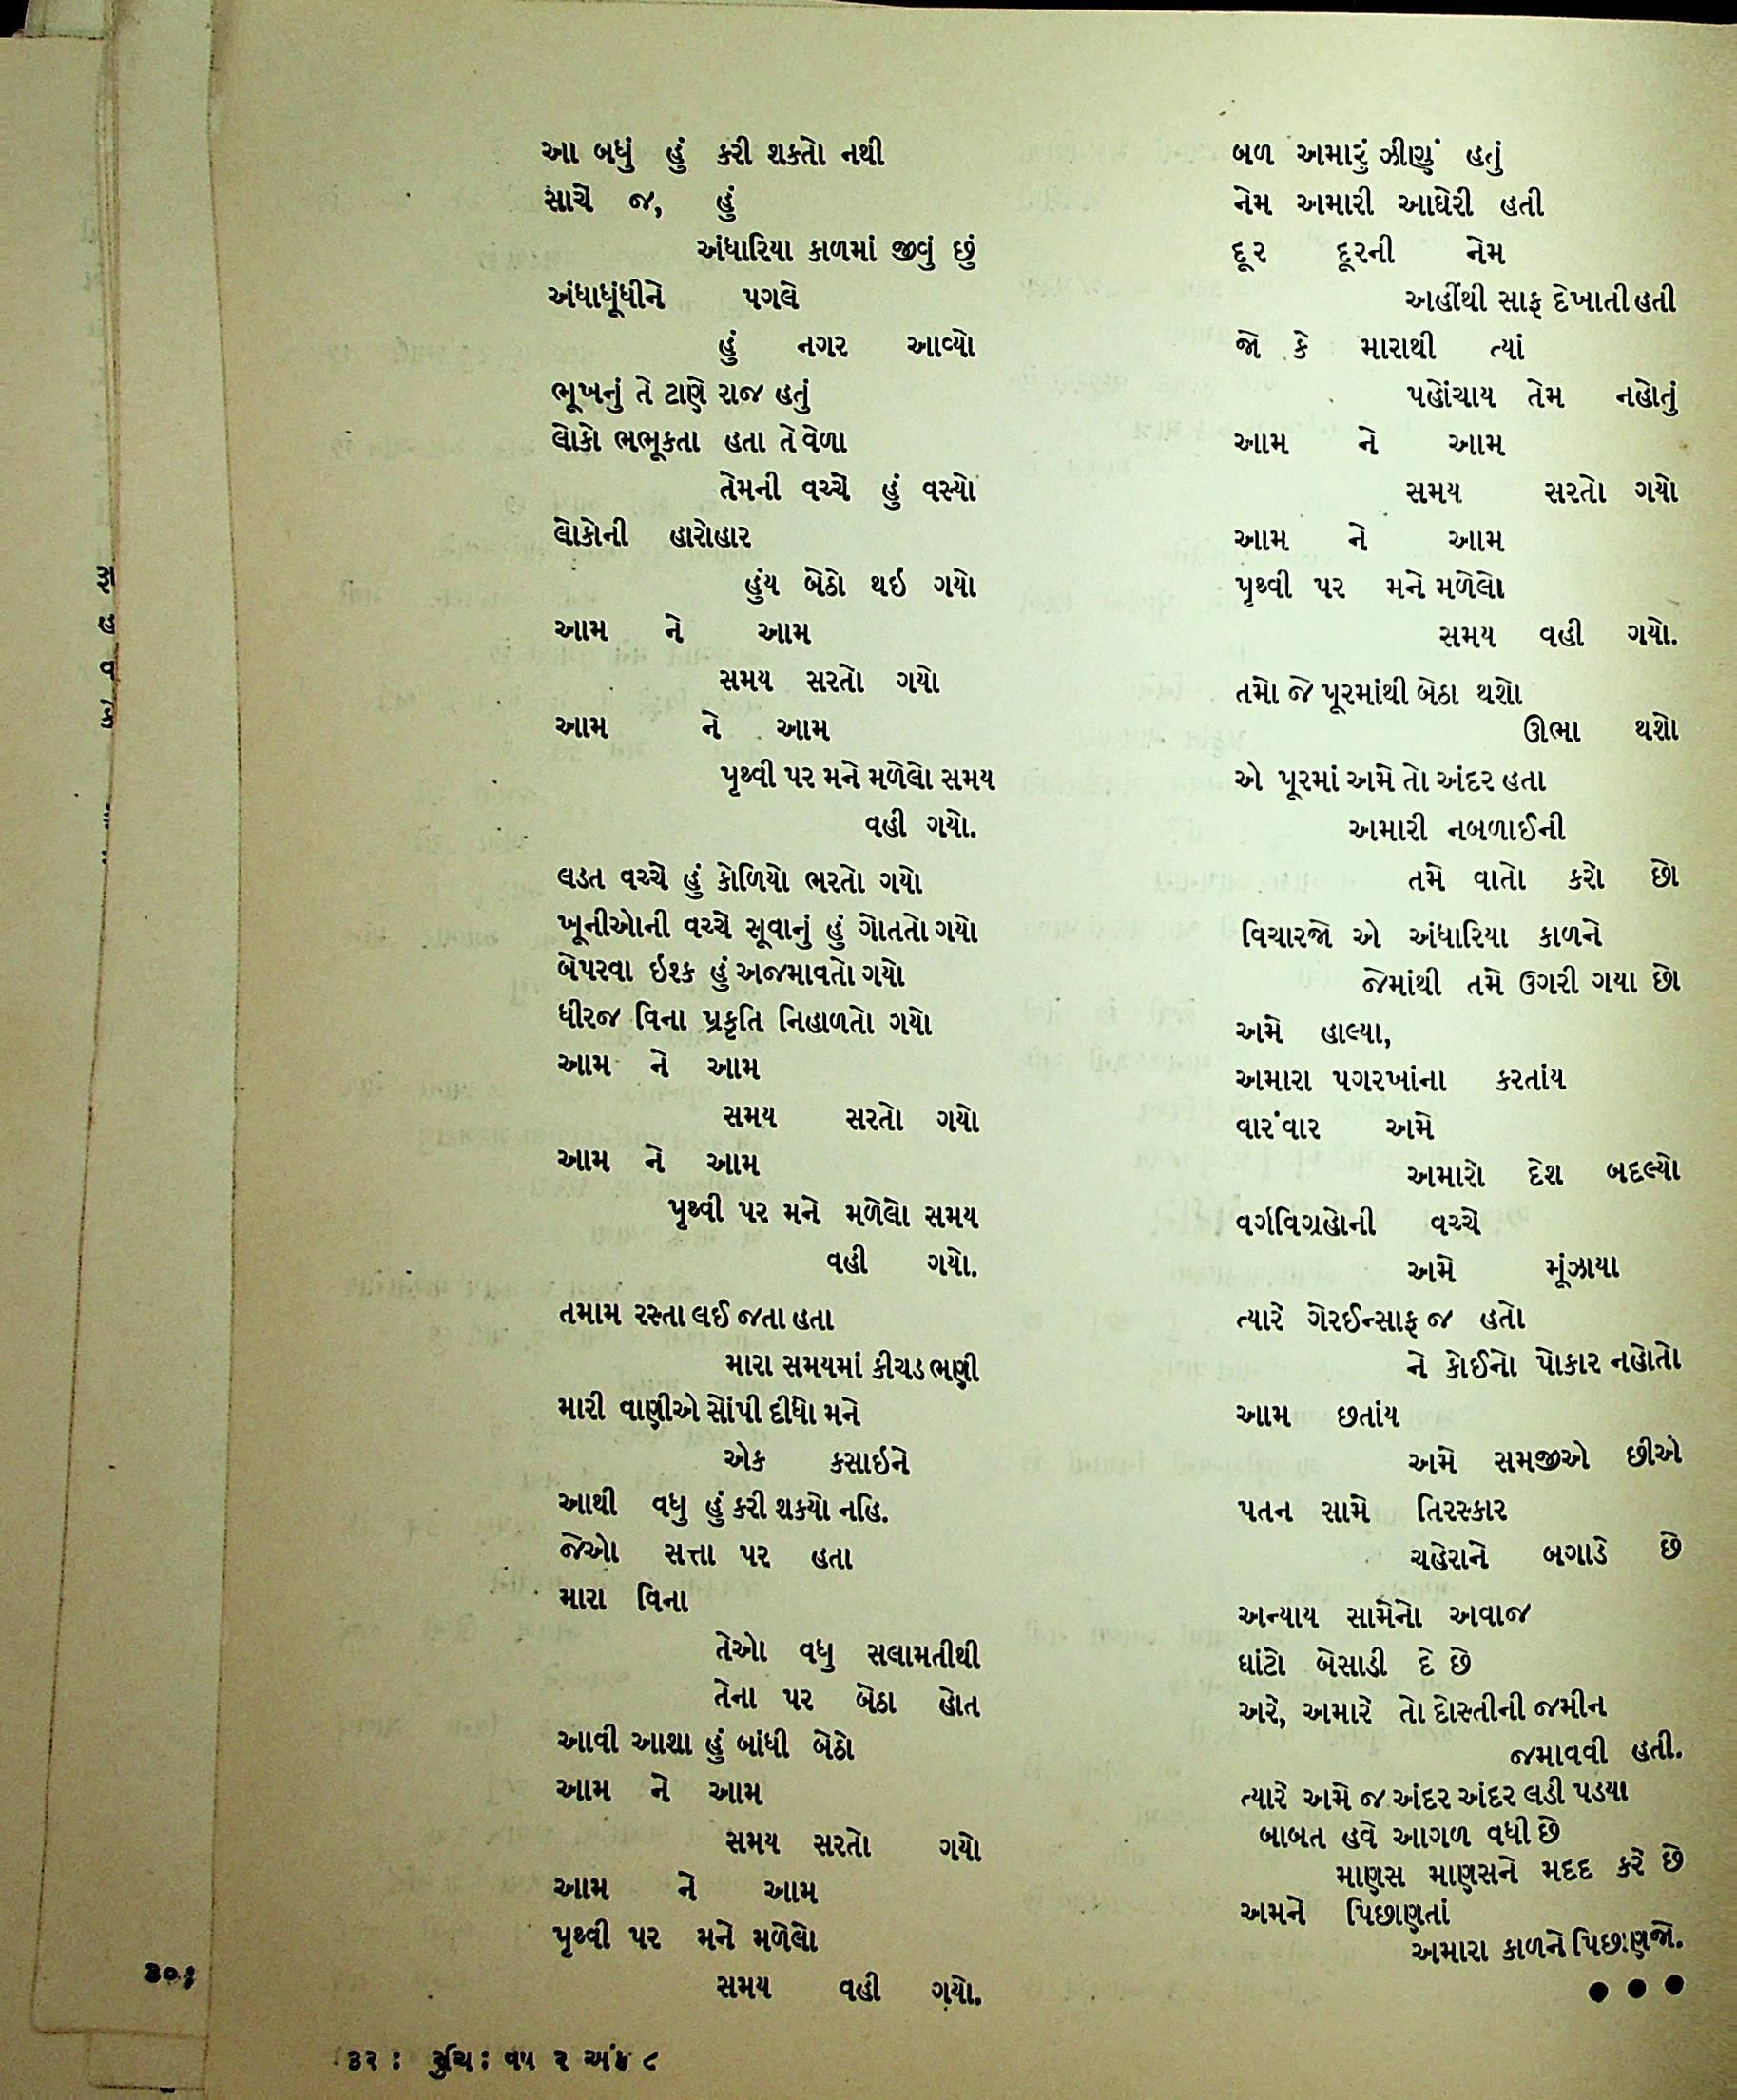 આ બધું હું કરી શકતો નથી
સાચે જ, હું
અંધારિયા કાળમાં જીવું છું
અંધાધૂંધીને પગલે
હું નગર આવ્યો
ભૂખનું તે ટાણે રાજ હતું
લોકો ભભૂકતા હતા તે વેળા
તેમની વચ્ચે હું વસ્યો
લોકોની હારોહાર
હુંય બેઠો થઇ ગયો
આમ ને આમ
સમય સરતો ગયો
આમ ને આમ
પૃથ્વી પર મને મળેલો સમય
વહી ગયો.
લડત વચ્ચે હું કોળિયો ભરતો ગયો
ખૂનીઓની વચ્ચે સૂવાનું હું ગોતતો ગયો
બેપરવા ઇશ્ક હું અજમાવતો ગયો
ધીરજ વિના પ્રકૃતિ નિહાળતો ગયો
આમ ને આમ
સમય સરતો ગયો
આમ ને આમ
પૃથ્વી પર મને મળેલો સમય
વહી ગયો.
તમામ રસ્તા લઈ જતા હતા
મારા સમયમાં કીચડ ભણી
મારી વાણીએ સોંપી દીધો મને
એક કસાઇને
આથી વધુ હું કરી શક્યો નહિ.
જેઓ સત્તા પર હતા
મારા વિના
તેઓ વધુ સલામતીથી
તેના પર બેઠા હોત
આવી આશા હું બાંધી બેઠો
આમ ને આમ
સમય સરતો ગયો
આમ ને આમ
પૃથ્વી પર મને મળેલો
સમય વહી ગયો.
બળ અમારું ઝીણું હતું
નેમ અમારી આઘેરી હતી
દૂર દૂરની નેમ
અહીંથી સાફ દેખાતી હતી
જો કે મારાથી ત્યાં
પહોંચાય તેમ નહોતું
આમ ને આમ
સમય સરતો ગયો
આમ ને આમ
પૃથ્વી પર મને મળેલો
સમય વહી ગયો.
તમો જે પૂરમાંથી બેઠા થશો
ઊભા થશો
એ પૂરમાં અમે તો અંદર હતા
અમારી નબળાઈની
તમે વાતો કરો છો
વિચારજો એ અંધારિયા કાળને
જેમાંથી તમે ઉગરી ગયા છો
અમે હાલ્યા,
અમારા પગરખાંના કરતાંય
વારંવાર અમે
અમારો દેશ બદલ્યો
વર્ગવિગ્રહોની વચ્ચે
અમે મૂંઝાયા
ત્યારે ગેરઈન્સાફ જ હતો
ને કોઈનો પોકાર નહોતો
આમ છતાંય
અમે સમજીએ છીએ
પતન સામે તિરસ્કાર
ચહેરાને બગાડે છે
અન્યાય સામેનો અવાજ
ઘાંટો બેસાડી દે છે
અરે, અમારે તો દોસ્તીની જમીન
જમાવવી હતી.
ત્યારે અમે જ અંદર અંદર લડી પડયા
બાબત હવે આગળ વધી છે
માણસ માણસને મદદ કરે છે
અમને પિછાણતાં
અમારા કાળને પિછાણજો.
૩૦:
૩૨ : રુચિ : વર્ષ ૨ અંક ૮